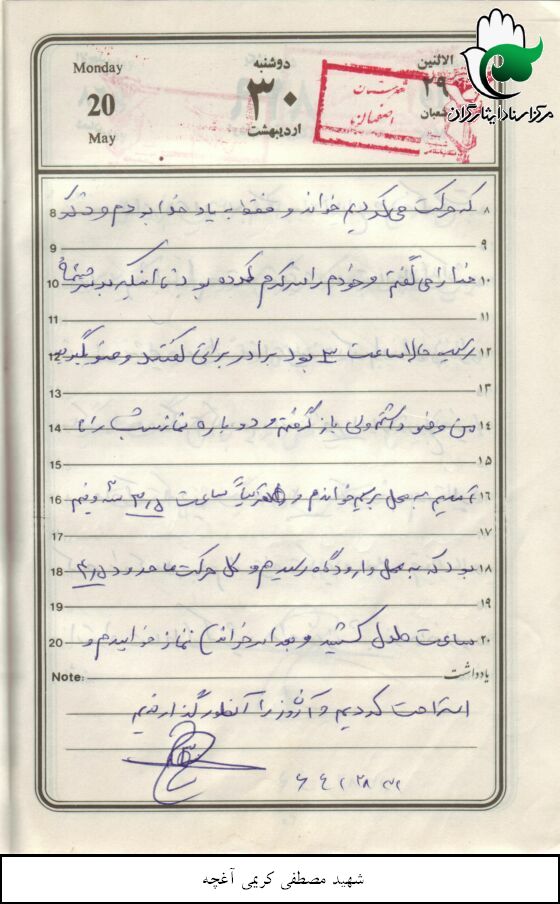 Monday
20
May
دوشنبه
۳۰
اردیبهشت
الاثنین
۲۹
شعبان
مرکز اسناد ایثارگران
که حرکت می‌کردیم خواند و فقط به یاد خدا بودم و
8 ۸
9 ۹
خدا را می گفتم و خودم را سرگرم کرده بودم تا اینکه به
10 ۱۰
11 ۱۱
رسید حالا ساعت ۳ بود برادر براتی گفتند وضو بگیرید
12 ۱۲
13 ۱۳
من وضو داشتم ولی باز گرفتم و دوباره نماز شب را تا
14 ۱۴
15 ۱۵
آمدیم به محل برسیم خواندم و تقریباً ساعت ۳٫۵
16 ۱۶
17 ۱۷
بود که به محل اردوگاه رسیدیم و کل حرکت ما حدود ۴٫۵
18 ۱۸
19 ۱۹
ساعت طول کشید و بعد از نماز خوابیدم و
20 ۲۰
Note: یادداشت
استراحت کردیم و آنروز را آنطور گذراندیم
شهید مصطفی کریمی آغچه